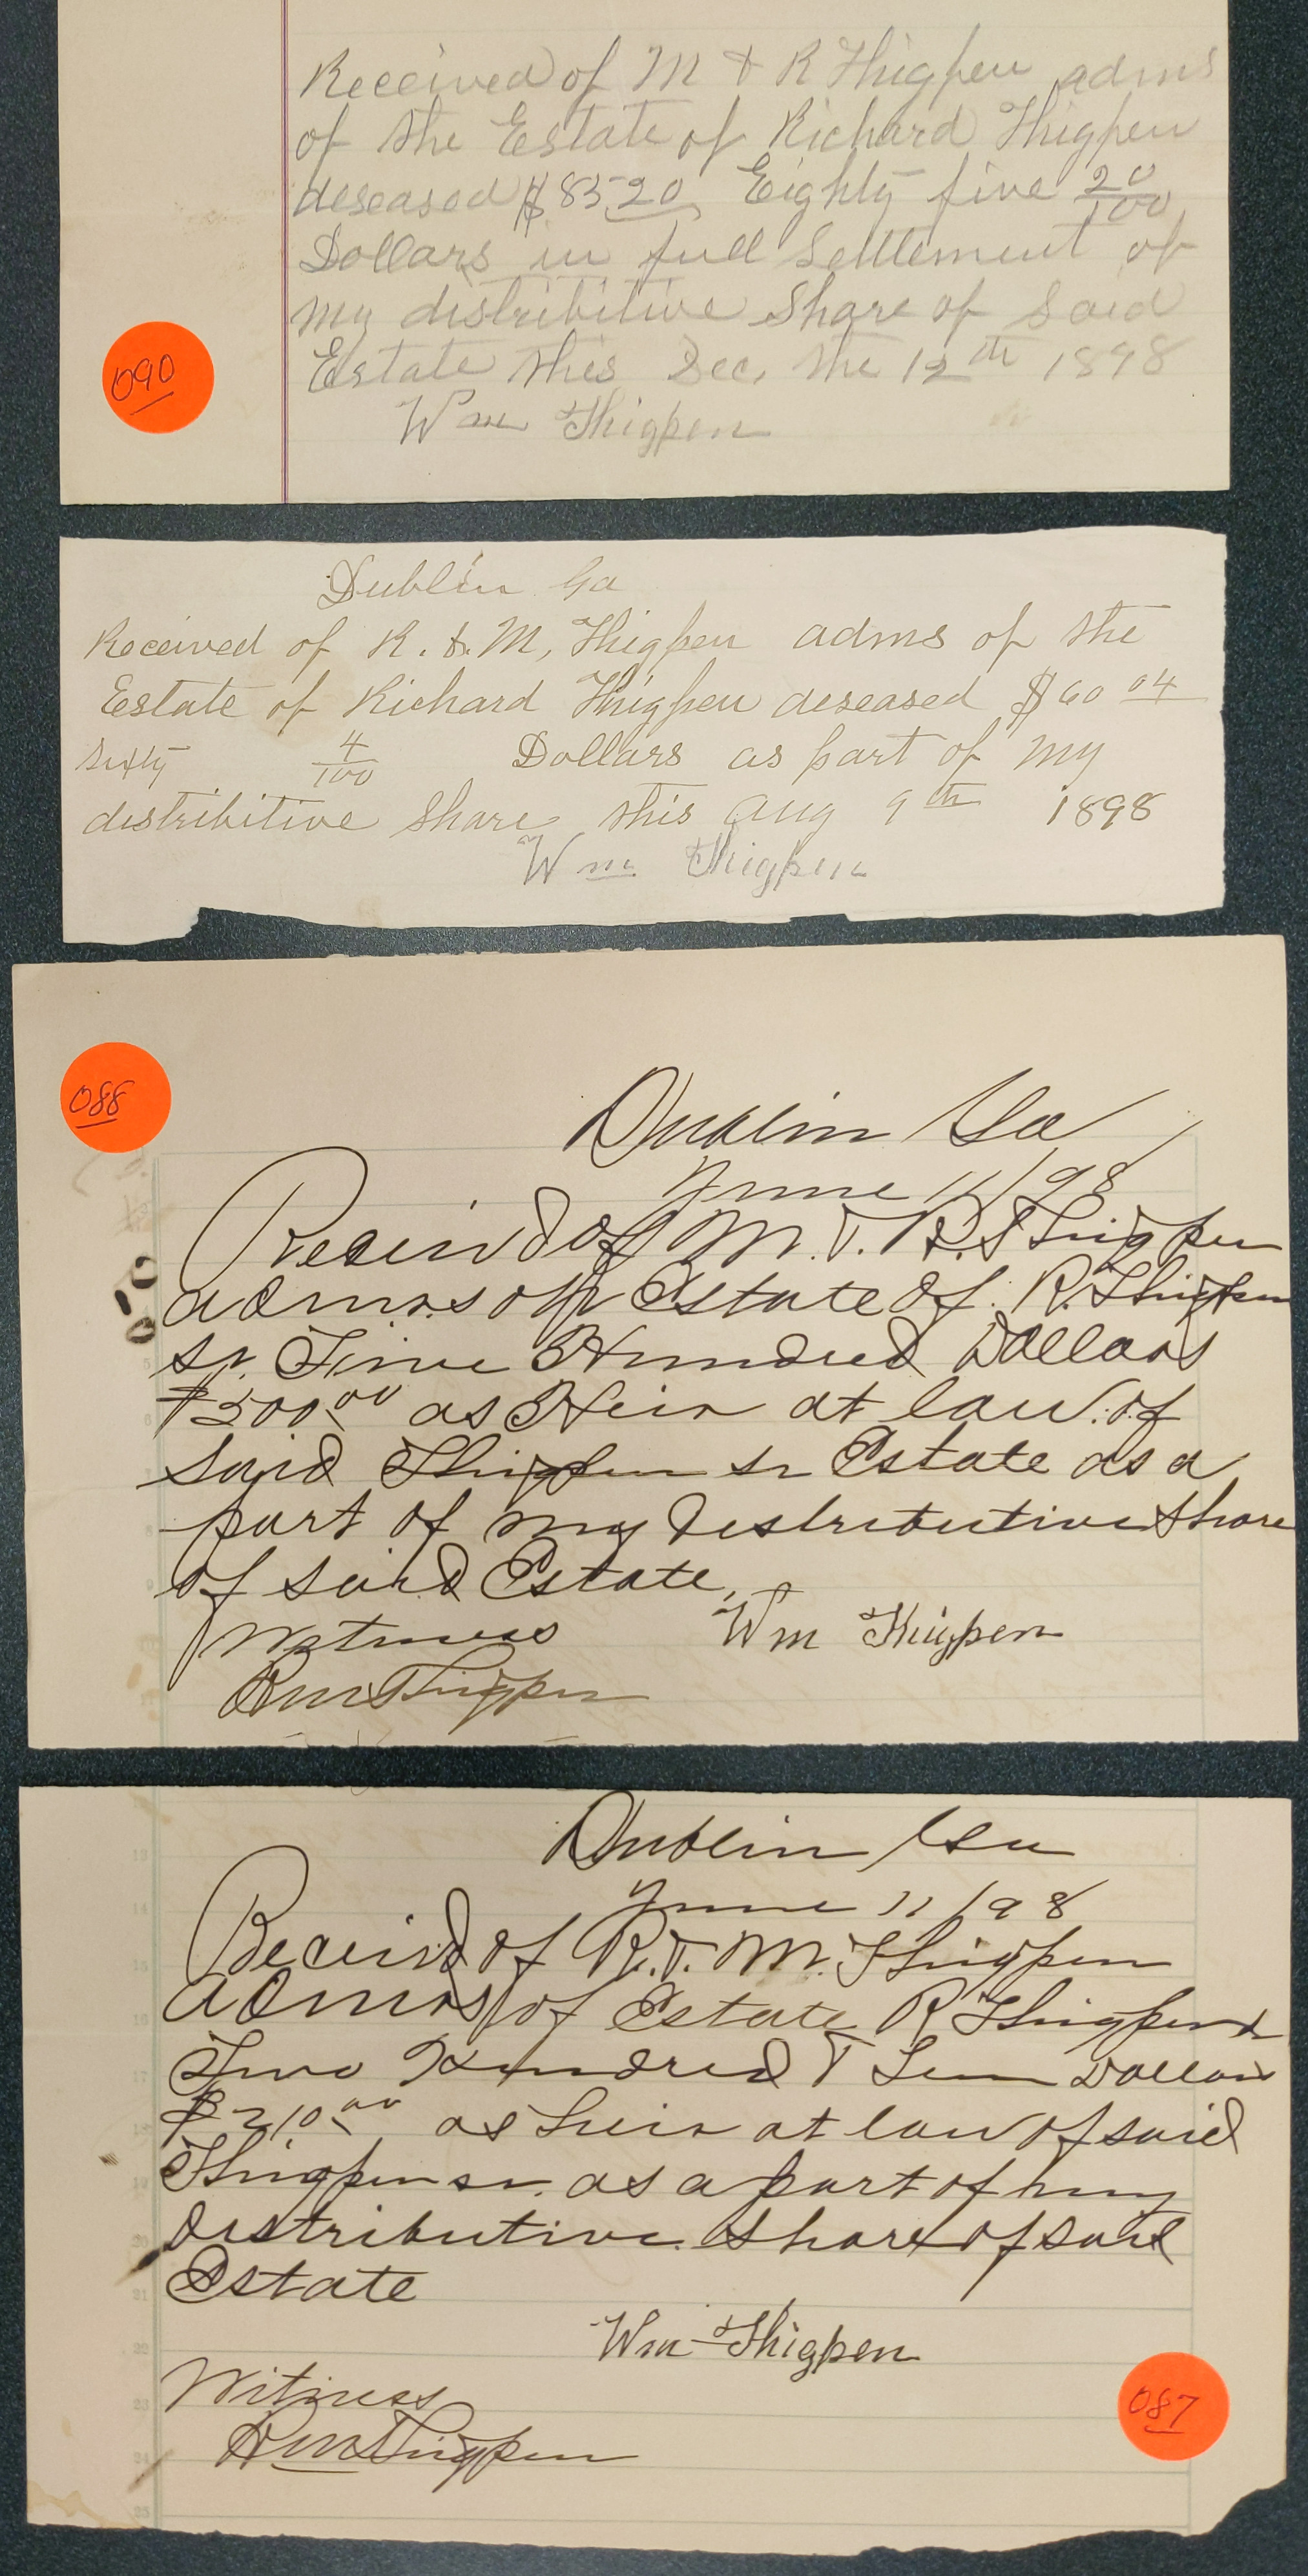 Received of M & R Thigpen adms
of the Estate of Richard Thigpen
deseased $85 20 Eighty five 20/100
Dollars in full Settlement of
my distribitive Share of Said
Estate this Dec, the 12th 1898
Wm Thigpen
090
Dublin Ga
Received of R. & M, Thigpen adms of the
Estate of Richard Thigpen deseased $60 04
Sixty 4/100 Dollars as part of my
distribitive Share this Aug 9th 1898
Wm Thigpen
088
Dublin Ga
June 11/98
Receivd of M. & R. Thigpen
admrs of Estate of R. Thigpen
sr. Five Hundred Dollars
$500.00 as Heir at law of
said Thigpen sr Estate as a
part of my destributive Share
of said Estate,
Witness Wm Thigpen
Thigpen
Dublin Ga
June 11/98
Receivd of R. & M. Thigpen
admrs of Estate R Thigpen sr
Two Hundred & Ten Dollars
$210.00 as heir at law of said
Thigpen sr. as a part of my
distributive Share of said
Estate
Wm Thigpen
Witness
Thigpen
087